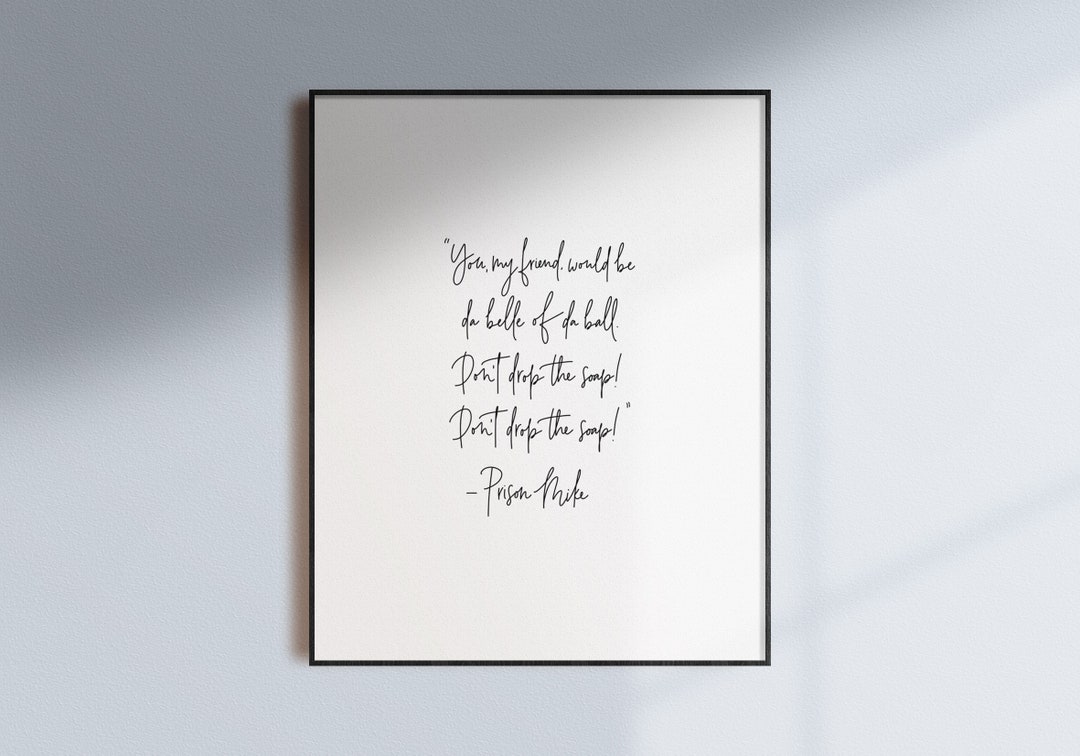 "You, my friend. would be
da belle of da ball.
Don't drop the soap!
Don't drop the soap!"
- Prison Mike